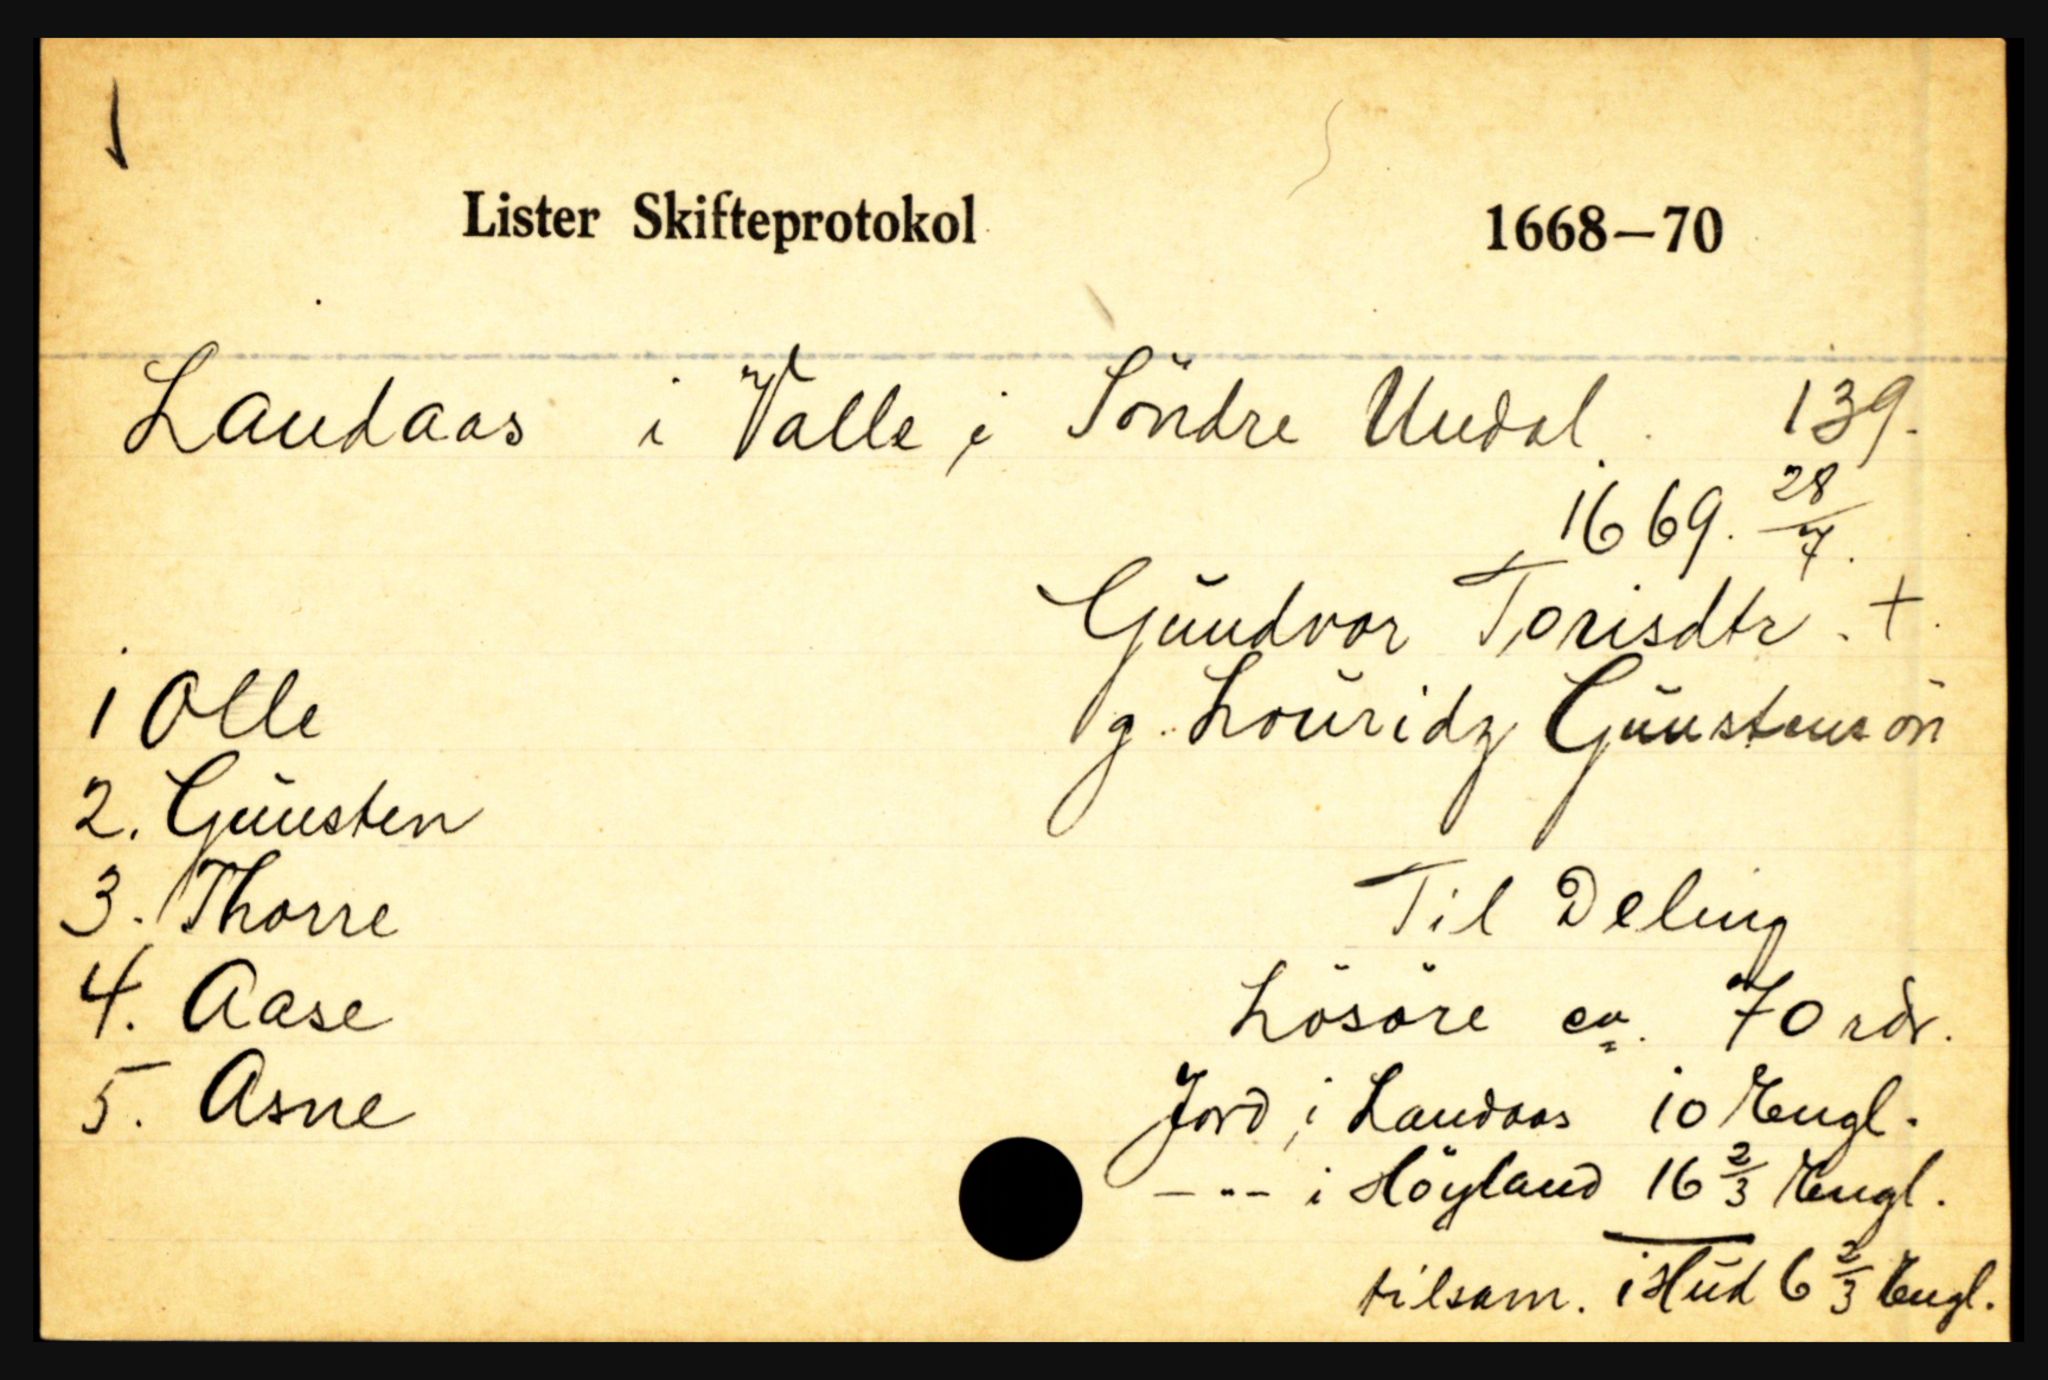 Lister Skifteprotokol 1668—70
Landaas i Valle i Söndre Undal. 139.
1669. 28/7.
Gundvor Torisdtr. +.
1 Olle
g. Louridz Gunstensön
2. Gunsten
3. Thorre
Til Deling
4. Aase
Lösöre ca. 70 rdr.
5. Asne
Jord i Landaas 10 Engl.
— „ — i Höyland 16 2/3 Engl.
tilsam. 1 Hud 6 2/3 Engl.